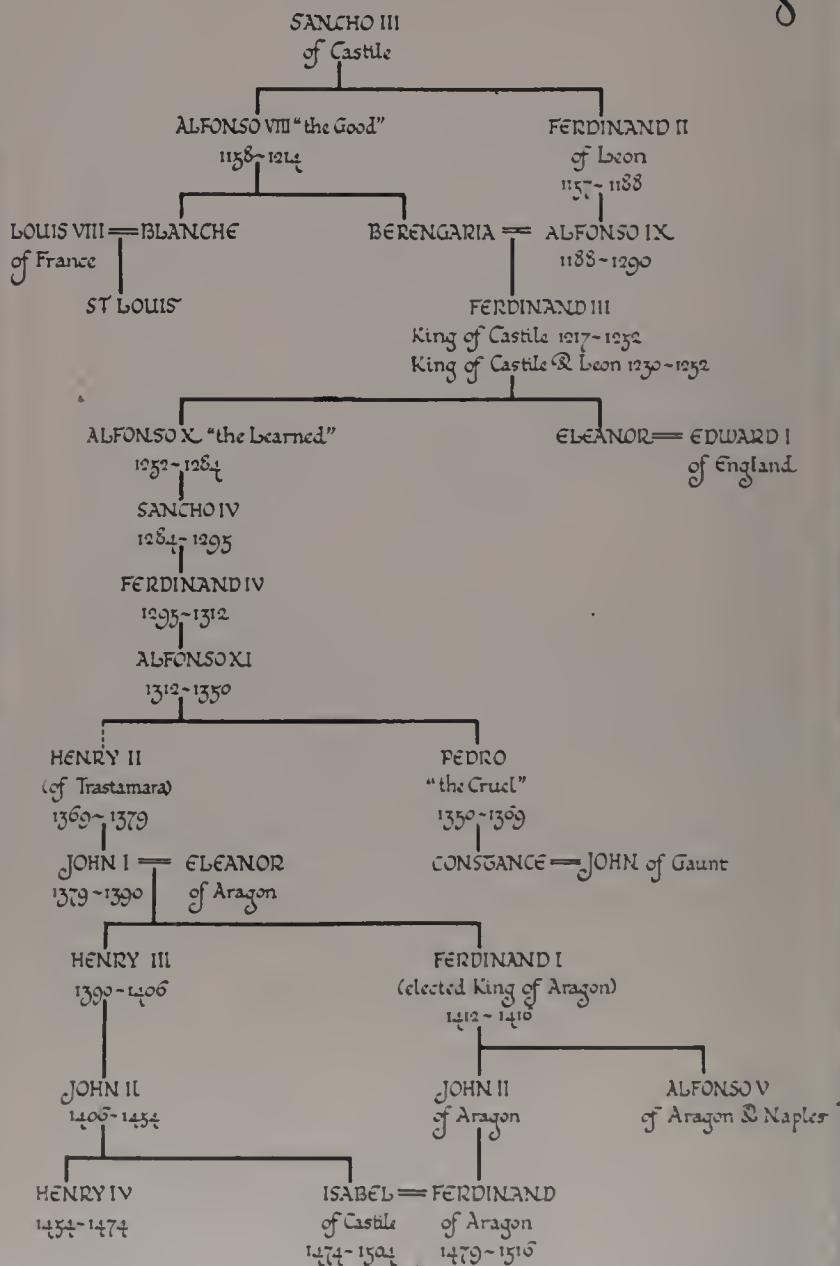 SANCHO III
of Castile
ALFONSO VIII "the Good"
1158~1214
FERDINAND II
of Leon
1157~1188
LOUIS VIII = BLANCHE
of France
BERENGARIA = ALFONSO IX
1188~1290
ST LOUIS
FERDINAND III
King of Castile 1217~1252
King of Castile & Leon 1230~1252
ALFONSO X "the Learned"
1252~1284
ELEANOR = EDWARD I
of England
SANCHO IV
1284~1295
FERDINAND IV
1295~1312
ALFONSO XI
1312~1350
HENRY II
(of Trastamara)
1369~1379
PEDRO
"the Cruel"
1350~1369
JOHN I = ELEANOR
1379~1390 of Aragon
CONSTANCE = JOHN of Gaunt
HENRY III
1390~1406
FERDINAND I
(elected King of Aragon)
1412~1416
JOHN II
1406~1454
JOHN II
of Aragon
ALFONSO V
of Aragon & Naples
HENRY IV
1454~1474
ISABEL = FERDINAND
of Castile of Aragon
1474~1504 1479~1516